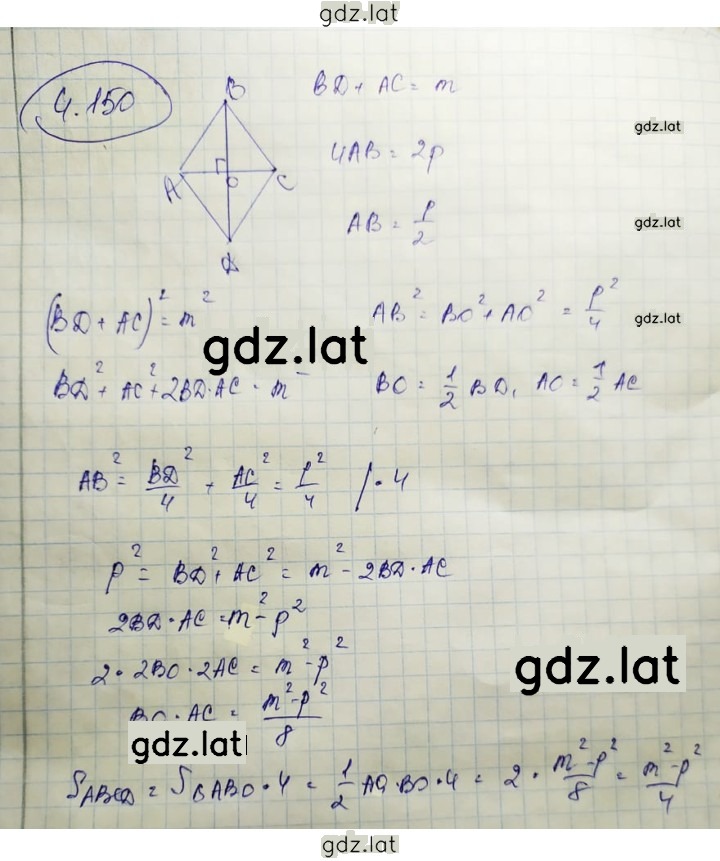 gdz.lat
4.150
B
A
O
C
D
BD + AC = m
gdz.lat
4AB = 2p
AB = p/2
gdz.lat
(BD + AC)² = m²
AB² = BO² + AO² = p²/4
gdz.lat
gdz.lat
BD² + AC² + 2BD·AC = m²
BO = 1/2 BD, AO = 1/2 AC
AB² = BD²/4 + AC²/4 = p²/4 | · 4
p² = BD² + AC² = m² - 2BD·AC
2BD·AC = m² - p²
2·2BO·2AC = m² - p²
gdz.lat
BO·AC = m²-p²/8
gdz.lat
S ABCD = S ABO · 4 = 1/2 AO·BO·4 = 2 · m²-p²/8 = m²-p²/4
gdz.lat